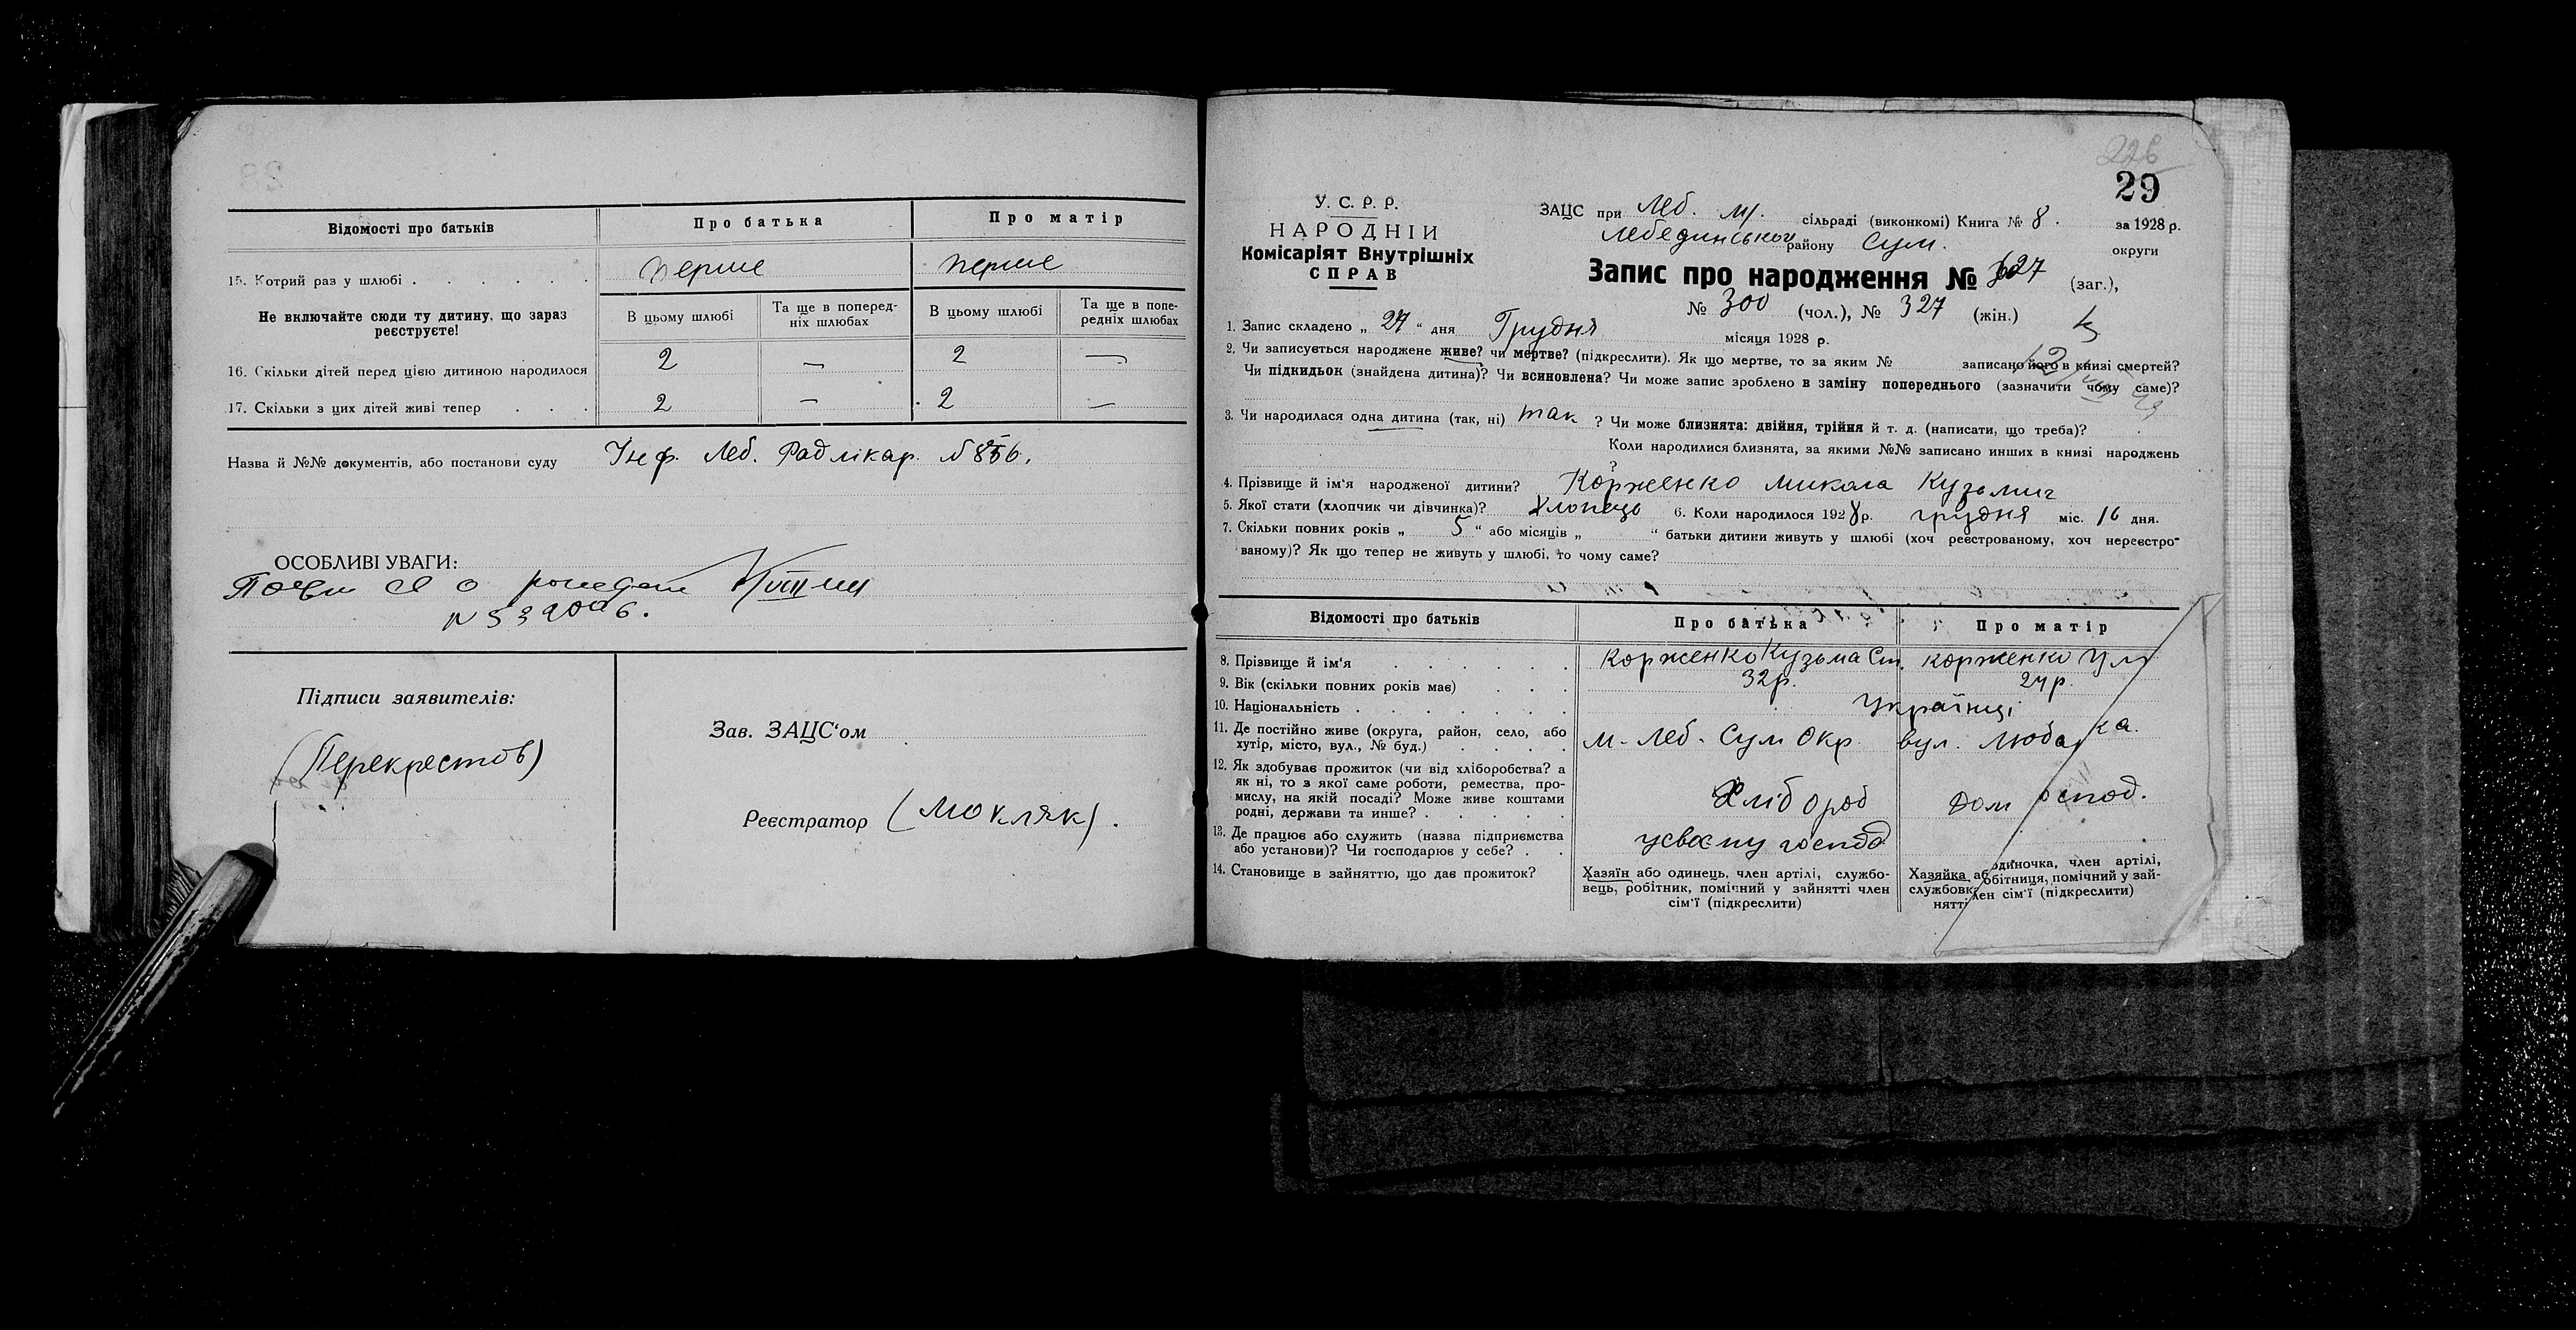 Відомості про батьків
Про батька
Про матір
15. Котрий раз у шлюбі . . . . . .
перше
перше
Не включайте сюди ту дитину, що зараз реєструєте!
В цьому шлюбі
Та ще в попередніх шлюбах
В цьому шлюбі
Та ще в попередніх шлюбах
16. Скільки дітей перед цією дитиною народилося
2 — 2 —
17. Скільки з цих дітей живі тепер . . .
2 — 2 —
Назва й №№ документів, або постанови суду
Інф. Леб. Радлікар. №856.
ОСОБЛИВІ УВАГИ:
Підписи заявителів:
(Перекрестов)
Зав. ЗАЦС'ом
Реєстратор (Мокляк).
226
29
У. С. Р. Р.
НАРОДНІЙ
Комісаріят Внутрішніх
СПРАВ
ЗАЦС при Леб. м. сільраді (виконкомі) Книга № 8. за 1928 р.
Лебединського району Сум. округи
Запис про народження № 627 (заг.),
№ 300 (чол.), № 327 (жін.)
1. Запис складено „ 27 “ дня Грудня місяця 1928 р.
2. Чи записується народжене живе? чи мертве? (підкреслити). Як що мертве, то за яким № записано його в книзі смертей?
Чи підкидьок (знайдена дитина)? Чи всиновлена? Чи може запис зроблено в заміну попереднього (зазначити чому саме)?
3. Чи народилася одна дитина (так, ні) так ? Чи може близнята: двійня, трійня й т. д. (написати, що треба)?
Коли народилися близнята, за якими №№ записано инших в книзі народжень
?
4. Прізвище й ім'я народженої дитини? Корженко Микола Кузьмич
5. Якої стати (хлопчик чи дівчинка)? Хлопець 6. Коли народилося 1928 р. грудня міс. 16 дня.
7. Скільки повних років „ 5 “ або місяців „ “ батьки дитини живуть у шлюбі (хоч реєстрованому, хоч нереєстро-
ваному)? Як що тепер не живуть у шлюбі, то чому саме?
Відомості про батьків
Про батька
Про матір
8. Прізвище й ім'я . . . . . .
Корженко Кузьма Ст.
Корженко Ул
9. Вік (скільки повних років має) . . .
32р.
24р.
10. Національність . . . . . . .
Українці
11. Де постійно живе (округа, район, село, або
хутір, місто, вул., № буд.) . . . .
м. Леб. Сум Окр. вул.
12. Як здобуває прожиток (чи від хліборобства? а
як ні, то з якої саме роботи, ремества, про-
мислу, на якій посаді? Може живе коштами
родні, держави та инше? . . . . .
Хлібороб
Дом оспод.
13. Де працює або служить (назва підприємства
або установи)? Чи господарює у себе? . .
у своєму господ
14. Становище в зайняттю, що дає прожиток?
Хазяїн або одинець, член артілі, службо-
вець, робітник, помічний у зайнятті член
сім'ї (підкреслити)
Хазяйка аб одиночка, член артілі,
службовк обітниця, помічний у зай-
нятті лен сім'ї (підкреслити)